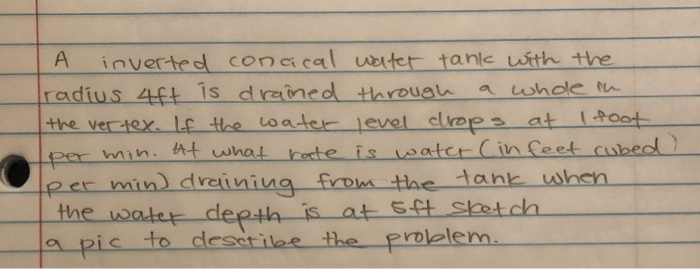 A inverted concical water tank with the
radius 4ft is drained through a whole in
the vertex. If the water level drops at 1 foot
per min. At what rate is water (in feet cubed)
per min) draining from the tank when
the water depth is at 5ft sketch
a pic to describe the problem.